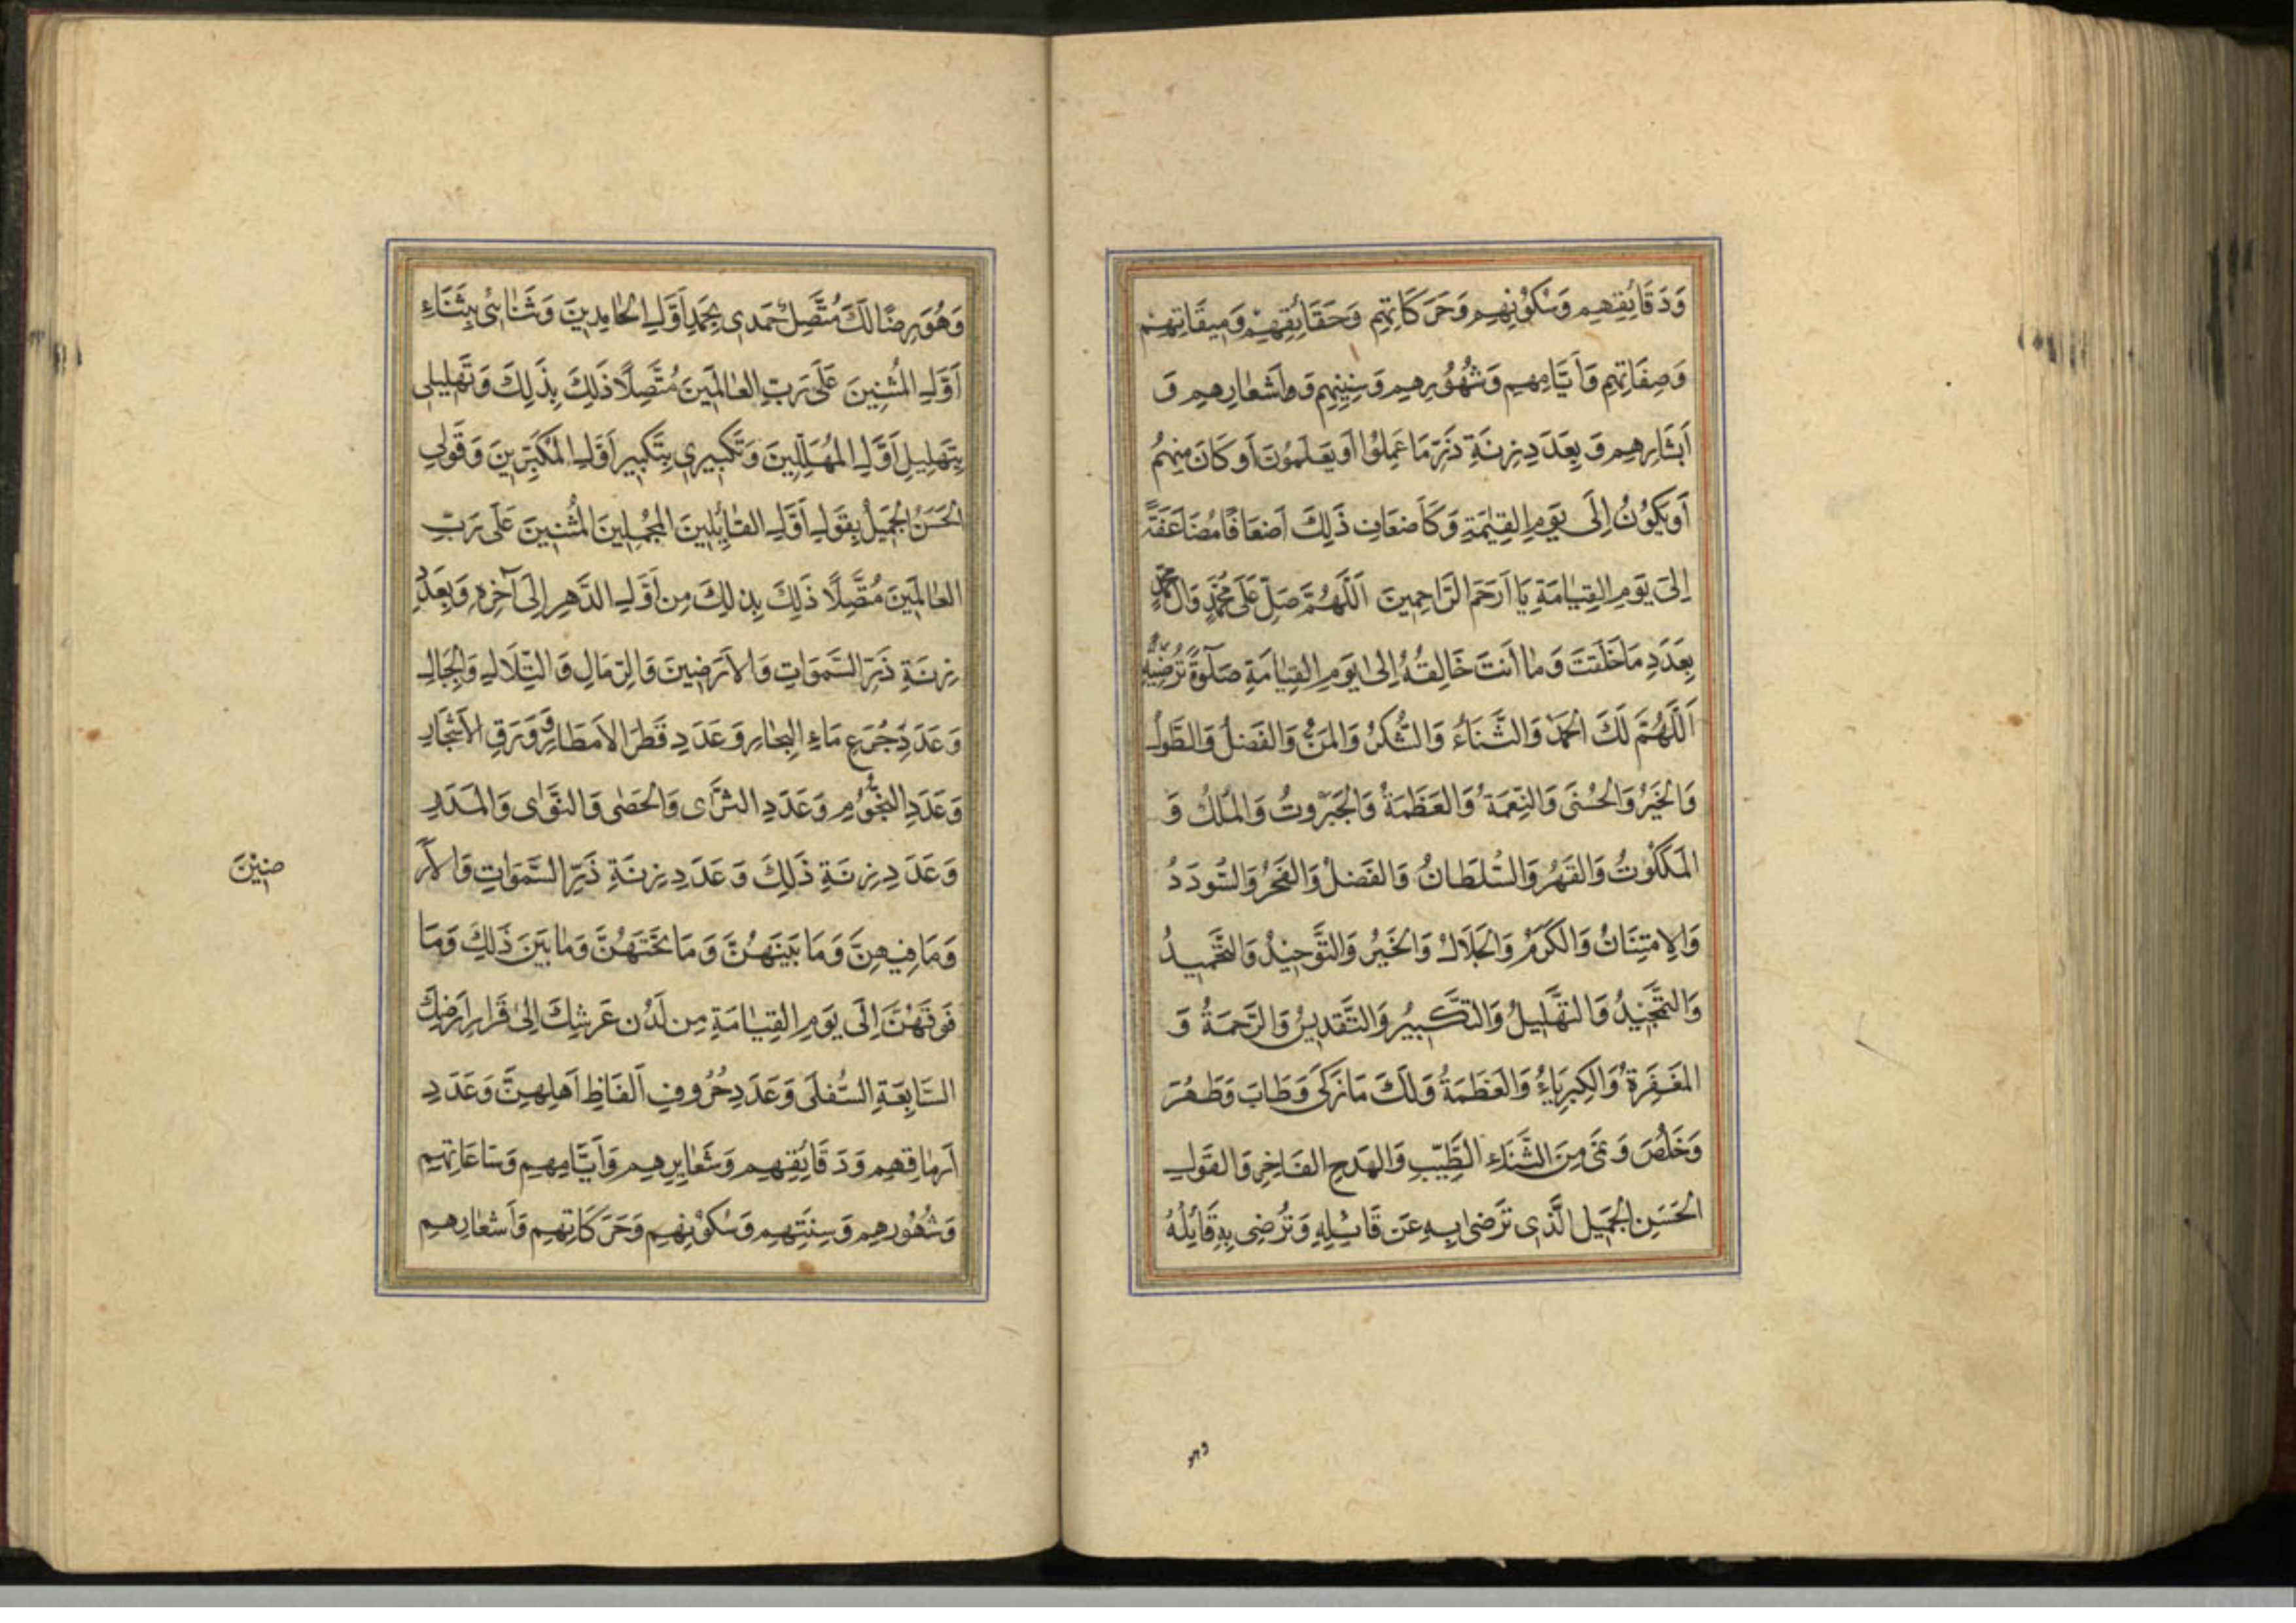 وَدَقَائِقِهِم وَسُكُوْنِهِم وَحَرَكَاتِهِم وَحَقَائِقِهِمْ وَمِيقَاتِهِمْ
وَصِفَاتِهِم وَأَيَّامِهِم وَشُهُوْرِهِم وَسِنِينِهِم وَأَشعَارِهِم وَ
أَبشَارِهِم وَ بِعَدَدِ زِنَةِ ذَرِّ مَا عَمِلُوْا أَو يَعلَمُونَ أَو كَانَ مِنهُم
أَو يَكُوْنُ إِلَى يَومِ القِيٰمَةِ وَكَأَضعَافِ ذَلِكَ أَضعَافًا مُضَاعَفَةً
إِلَى يَومِ القِيَامَةِ يَا أَرحَمَ الرَّاحِمِينَ اَللَّهُمَّ صَلِّ عَلَى مُحَمَّدٍ وَآلِ مُحَمَّدٍ
بِعَدَدِ مَا خَلَقتَ وَمَا أَنتَ خَالِقُهُ إِلى يَومِ القِيَامَةِ صَلٰوةً تُرضِيهِ
اَللَّهُمَّ لَكَ الحَمدُ وَالثَّنَاءُ وَالشُّكرُ وَالمَنُّ وَالفَضلُ وَالطَّولُ
وَالخَيرُ وَالحُسنَى وَالنِّعمَةُ وَالعَظَمَةُ وَالجَبَرُوتُ وَالمُلكُ وَ
المَلَكُوْتُ وَالقَهرُ وَالسُّلطَانُ وَالفَضلُ وَالفَخرُ وَالسُّودَدُ
وَالِامتِنَانُ وَالكَرَمُ وَالجَلَالُ وَالخَيرُ وَالتَّوحِيْدُ وَالتَّحمِيدُ
وَالتَّمجِيْدُ وَالتَّهلِيلُ وَالتَّكبِيرُ وَالتَّقدِيسُ وَالرَّحمَةُ وَ
المَغفِرَةُ وَالكِبرِيَاءُ وَالعَظَمَةُ وَلَكَ مَا زَكَى وَطَابَ وَطَهُرَ
وَخَلُصَ وَنَمَى مِنَ الثَّنَاءِ الطَّيِّبِ وَالمَدحِ الفَاخِرِ وَالقَولِ
الحَسَنِ الجَمِيلِ الَّذِى تَرضى بِهِ عَن قَائِلِهِ وَتُرضِى بِهِ قَائِلَهُ
وهو
وَهُوَ رِضًا لَكَ مُتَّصِلٌ حَمدِى بِحَمدِ أَوَّلِ الحَامِدِينَ وَثَنَائِى بِثَنَاءِ
أَوَّلِ المُثنِينَ عَلَى رَبِّ العَالَمِينَ مُتَّصِلًا ذَلِكَ بِذَلِكَ وَتَهلِيلِى
بِتَهلِيلِ أَوَّلِ المُهَلِّلِينَ وَتَكبِيرِي بِتَكبِيرِ أَوَّلِ المُكَبِّرِينَ وَقَولِي
الحَسَنُ الجَمِيلُ بِقَولِ أَوَّلِ القَائِلِينَ المُجمِلِينَ المُثنِينَ عَلَى رَبِّ
العَالَمِينَ مُتَّصِلًا ذَلِكَ بِذلِكَ مِن أَوَّلِ الدَّهرِ إِلَى آخِرِهِ وَبِعَدَدِ
زِنَةِ ذَرِّ السَّمَوَاتِ وَالأَرَضِينَ وَالرِّمَالِ وَالتِّلَالِ وَالجِبَالِ
وَعَدَدِ جُرَعِ مَاءِ البِحَارِ وَعَدَدِ قَطرِ الأَمطَارِ وَوَرَقِ الأَشجَارِ
وَعَدَدِ النُّجُوْمِ وَعَدَدِ الثَّرَى وَالحَصَى وَالنَّوَى وَالمَدَرِ
وَعَدَدِ زِنَةِ ذَلِكَ وَعَدَدِ زِنَةِ ذَرِّ السَّمَوَاتِ وَالأَرَ
ضِيْنَ
وَمَا فِيهِنَّ وَمَا بَينَهُنَّ وَمَا تَحتَهُنَّ وَمَا بَينَ ذَلِكَ وَمَا
فَوقَهُنَّ إِلَى يَومِ القِيَامَةِ مِن لَدُن عَرشِكَ إِلَى قَرَارِ أَرضِكَ
السَّابِعَةِ السُّفلَى وَعَدَدِ حُرُوفِ أَلفَاظِ أَهلِهِنَّ وَعَدَدِ
أَرمَاقِهِم وَدَقَائِقِهِم وَشَعَائِرِهِم وَأَيَّامِهِم وَسَاعَاتِهِم
وَشُهُورِهِم وَسِنَتِهِم وَسُكُوْنِهِم وَحَرَكَاتِهِم وَأَشعَارِهِم